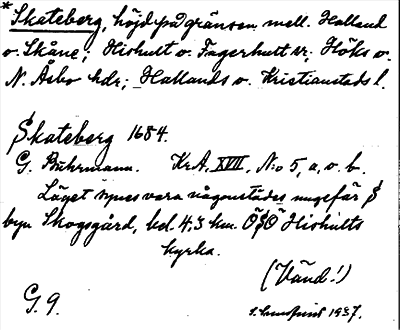 *Skateberg, höjd på gränsen mell. Halland
o. Skåne; Hishult o. Fagerhult sr; Höks o.
N. Åsbo hdr; Hallands o. Kristianstads l.
Skateberg 1684.
G. Buhrmann. Kr. A. XVII, No 5, a, o. b.
Läget synes vara någonstädes ungefär S
byn Skogsgård, bel. 4,3 km. ÖSÖ Hishults
kyrka.
(Vänd!)
G. 9.
1937.